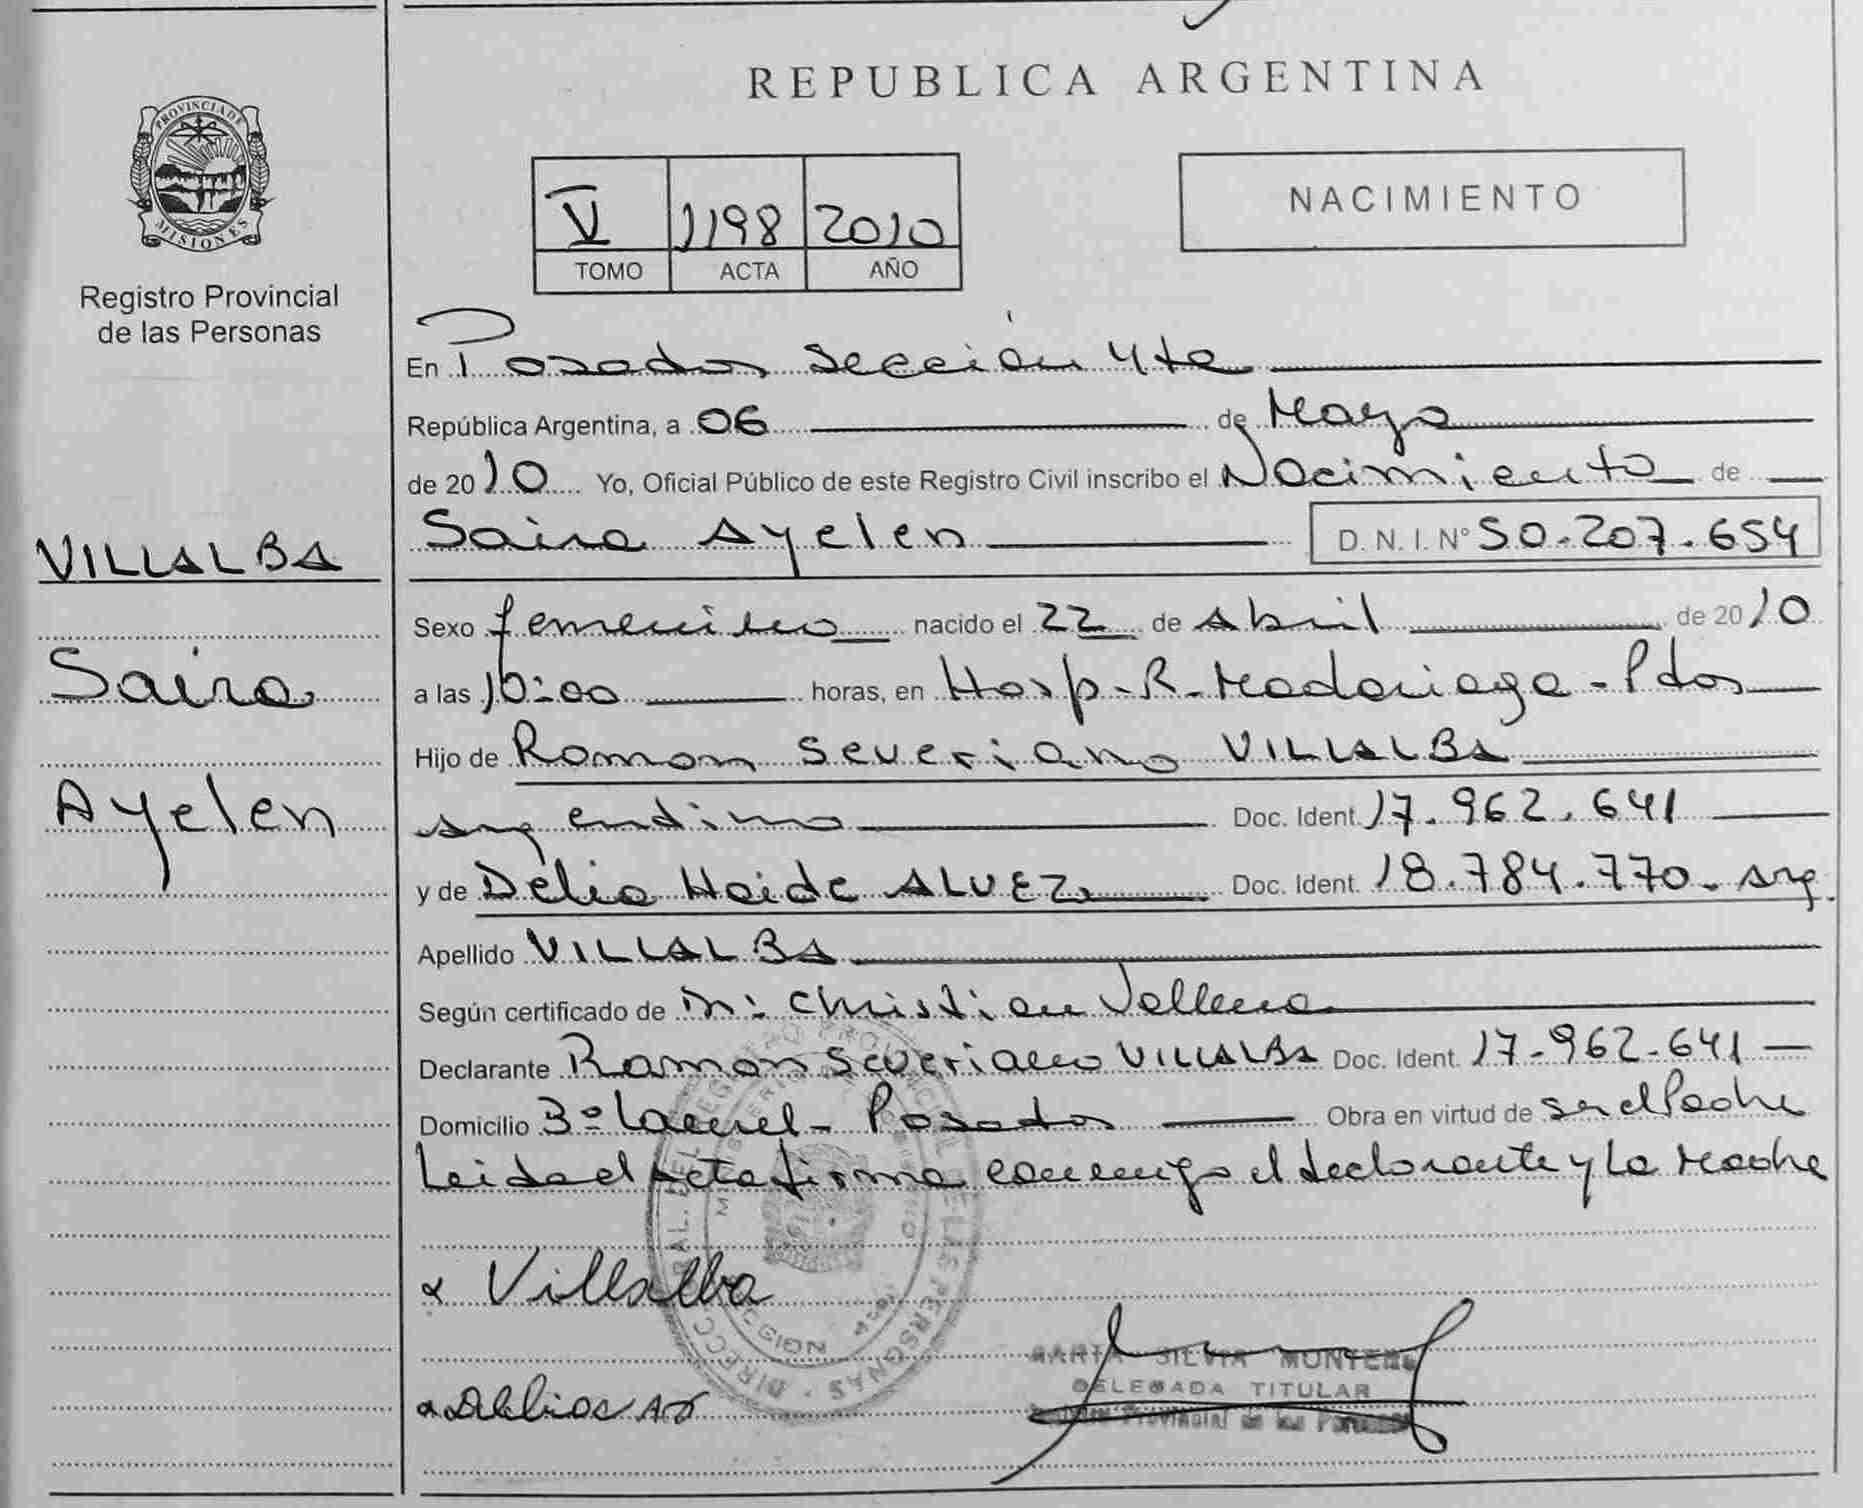 REPUBLICA ARGENTINA
PROVINCIA DE
MISIONES
Registro Provincial
de las Personas
V 1198 2010
TOMO ACTA AÑO
NACIMIENTO
En Posadas Sección 4ta
República Argentina, a 06 de Mayo
de 2010 Yo, Oficial Público de este Registro Civil inscribo el Nacimiento de
Saira Ayelen D. N. I. N° 50.207.654
VILLALBA
Saira
Ayelen
Sexo femenino nacido el 22 de Abril de 2010
a las 10:00 horas, en Hosp. R. Madariaga - Pdas
Hijo de Ramon Severiano VILLALBA
argentino Doc. Ident. 17.962.641
y de Delia Haide ALVEZ Doc. Ident. 18.784.770. arg.
Apellido VILLALBA
Según certificado de Dr. Christian
Declarante Ramon Severiano VILLALBA Doc. Ident. 17-962-641
Domicilio Posadas Obra en virtud de ser el Padre
Leida el acta firma conmigo el declarante y La Madre
Villalba
SILVIA
DELEGADA TITULAR
Provincial de las Personas